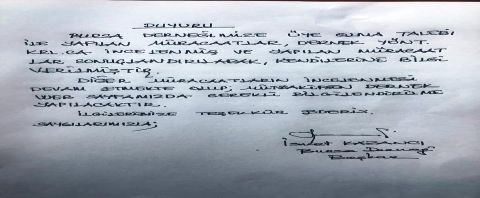 DUYURU
BURSA DERNEĞİMİZE ÜYE OLMA TALEBİ
İLE YAPILAN MÜRACAATLAR, DERNEK YÖNT.
KRL.CA İNCELENMİŞ VE YAPILAN MÜRACAAT
LAR SONUÇLANDIRILARAK, KENDİLERİNE BİLGİ
VERİLMİŞTİR.
DİĞER MÜRACAATLARIN İNCELENMESİ
DEVAM ETMEKTE OLUP, MÜTEAKİBEN DERNEK
WEB SAYFAMIZDA GEREKLİ BİLGİLENDİRİLME
YAPILACAKTIR.
İLGİLERİNİZE TEŞEKKÜR EDERİZ.
SAYGILARIMIZLA;
İsmet KAZANCI
Bursa Derneği
Başkanı